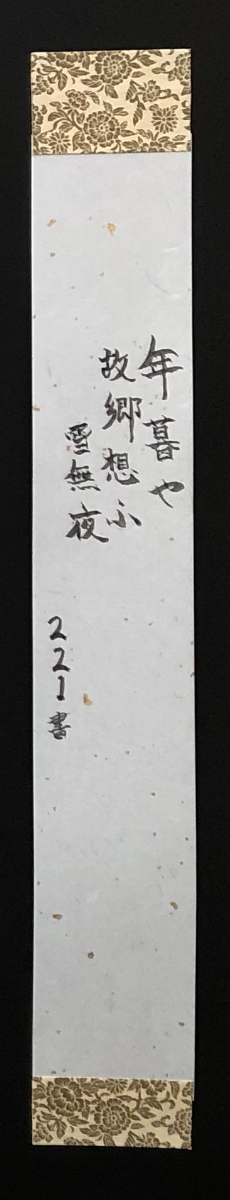 年暮や
故郷想ふ
雪無夜
221書